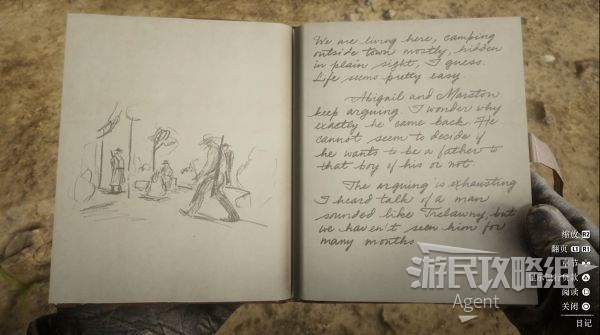 We are living here, camping
outside town mostly, hidden
in plain sight, I guess.
Life seems pretty easy.
Abigail and Marston
keep arguing. I wonder why
exactly he came back. He
cannot seem to decide if
he wants to be a father to
that boy of his or not.
The arguing is exhausting
I heard talk of a man
sounded like Trelawny, but
we haven't seen him for
many months.
游民攻略组
Agent
缩放 R2
翻页 L1 R1
阅读
关闭
日记